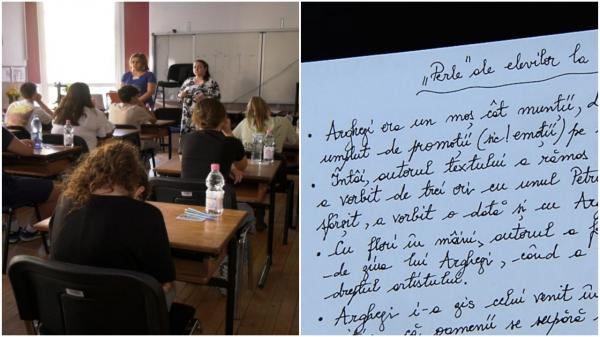 „Perle” ale elevilor la
• Arghegi era un moș cât muntii,
umflut de promoții (sic! emoții) pe
• Întâi, autorul textului a rămas
a vorbit de trei ori cu unul Petru
sfârșit, a vorbit o dată și cu Ar
• Cu flori în mâini, autorul a f
de ziua lui Arghegi, când a
dreptul artistului.
• Arghegi i-a zis celui venit în
că oamenii se scăpără